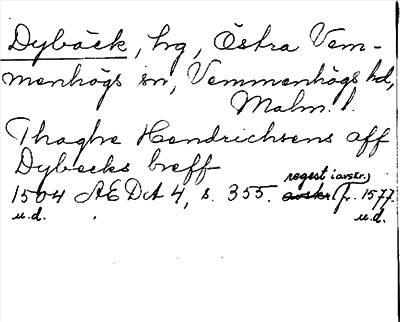 Dybäck, hg, Östra Vem-
menhögs sn, Vemmenhögs hd,
Malm. l.
Thaghe Hendrichsens aff
Dybecks breff
regest i avskr.)
1504 ÆDA 4, s. 355. avskr. fr. 1577
u.d. u.d.